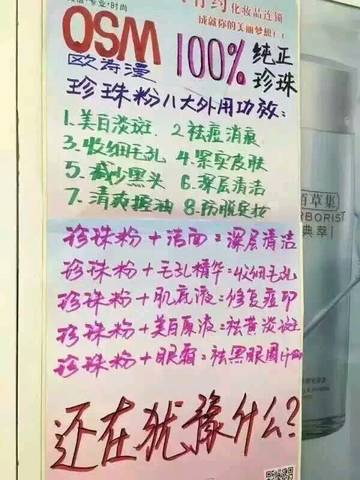 专业·时尚
有约化妆品连锁
成就你的美丽梦想!
OSM
欧诗漫
100%纯正珍珠
珍珠粉八大外用功效:
1.美白淡斑 2.祛痘消痕
3.收细毛孔 4.紧实皮肤
5.减少黑头 6.深层清洁
7.清爽控油 8.防脱定妆
珍珠粉+洁面=深层清洁
珍珠粉+毛孔精华=收细毛孔
珍珠粉+肌底液=修复痘印
珍珠粉+美白原液=祛黄淡斑
珍珠粉+眼霜=祛黑眼圈
还在犹豫什么?
佰草集
HERBORIST
典萃